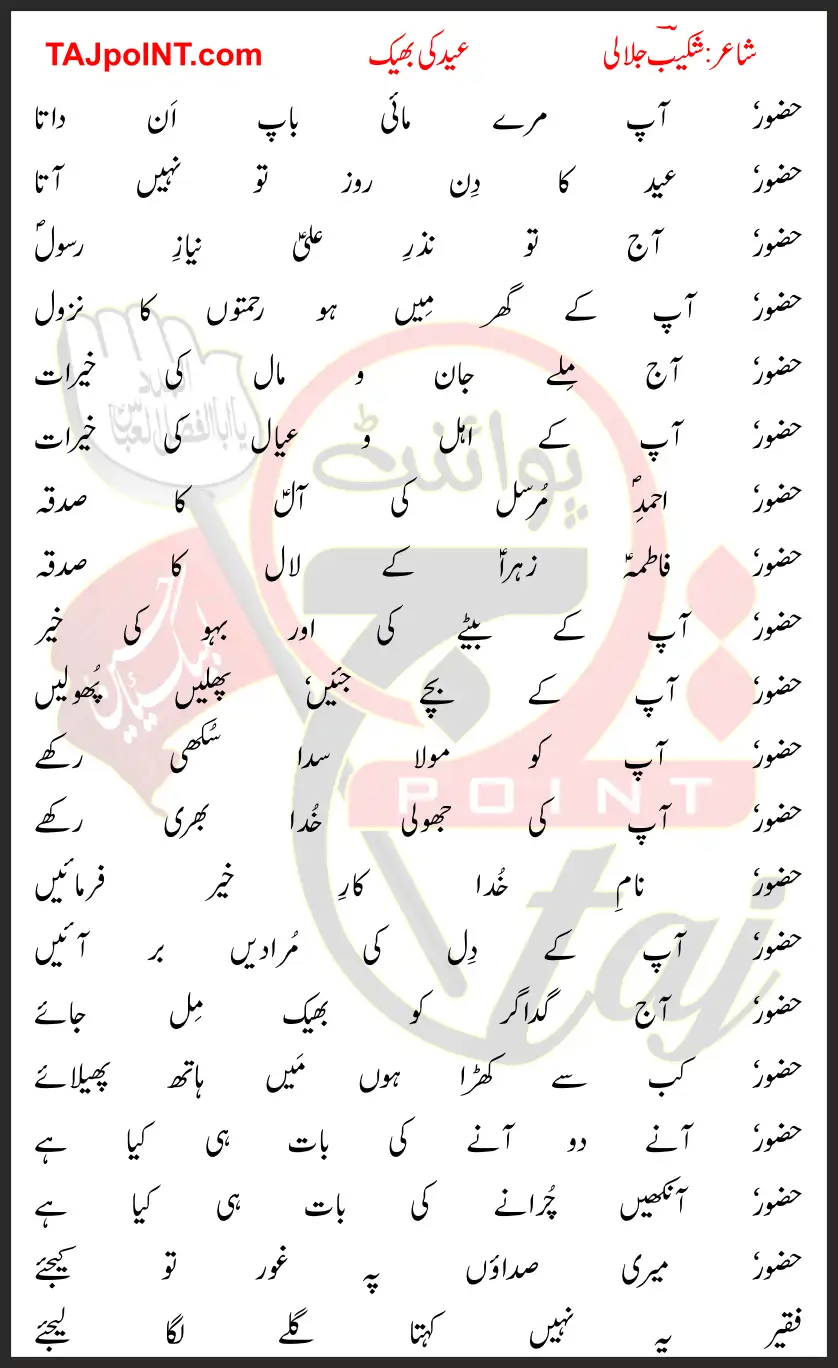 شاعر: شکیبؔ جلالی عید کی بھیک TAJpoINT.com
حضورؐ آپ مرے مائی باپ اَن داتا
حضورؐ عید کا دِن روز تو نہیں آتا
حضورؐ آج تو نذرِ علیؑ نیازِ رسولؐ
حضورؐ آپ کے گھر مِیں ہو رحمتوں کا نزول
حضورؐ آج مِلے جان و مال کی خیرات
حضورؐ آپ کے اہل و عیال کی خیرات
حضورؐ احمدِؐ مُرسّل کی آلؑ کا صدقہ
حضورؐ فاطمہؑ زہراؑ کے لال کا صدقہ
حضورؐ آپ کے بیٹے کی اور بہو کی خیر
حضورؐ آپ کے بچے جئیںٗ پھلیں پُھولیں
حضورؐ آپ کو مولا سدا سُکھی رکھے
حضورؐ آپ کی جھولی خُدا بھری رکھے
حضورؐ نامِ خُدا کارِ خیر فرمائیں
حضورؐ آپ کے دِل کی مُرادیں بر آئیں
حضورؐ آج گداگر کو بھیک مِل جائے
حضورؐ کب سے کھڑا ہوں مَیں ہاتھ پھیلائے
حضورؐ آنے دو آنے کی بات ہی کیا ہے
حضورؐ آنکھیں چُرانے کی بات ہی کیا ہے
حضورؐ میری صداؤں پہ غور تو کیجئے
فقیر یہ نہیں کہتا گلے لگا لیجئے
پوائنٹ
POINT
taj